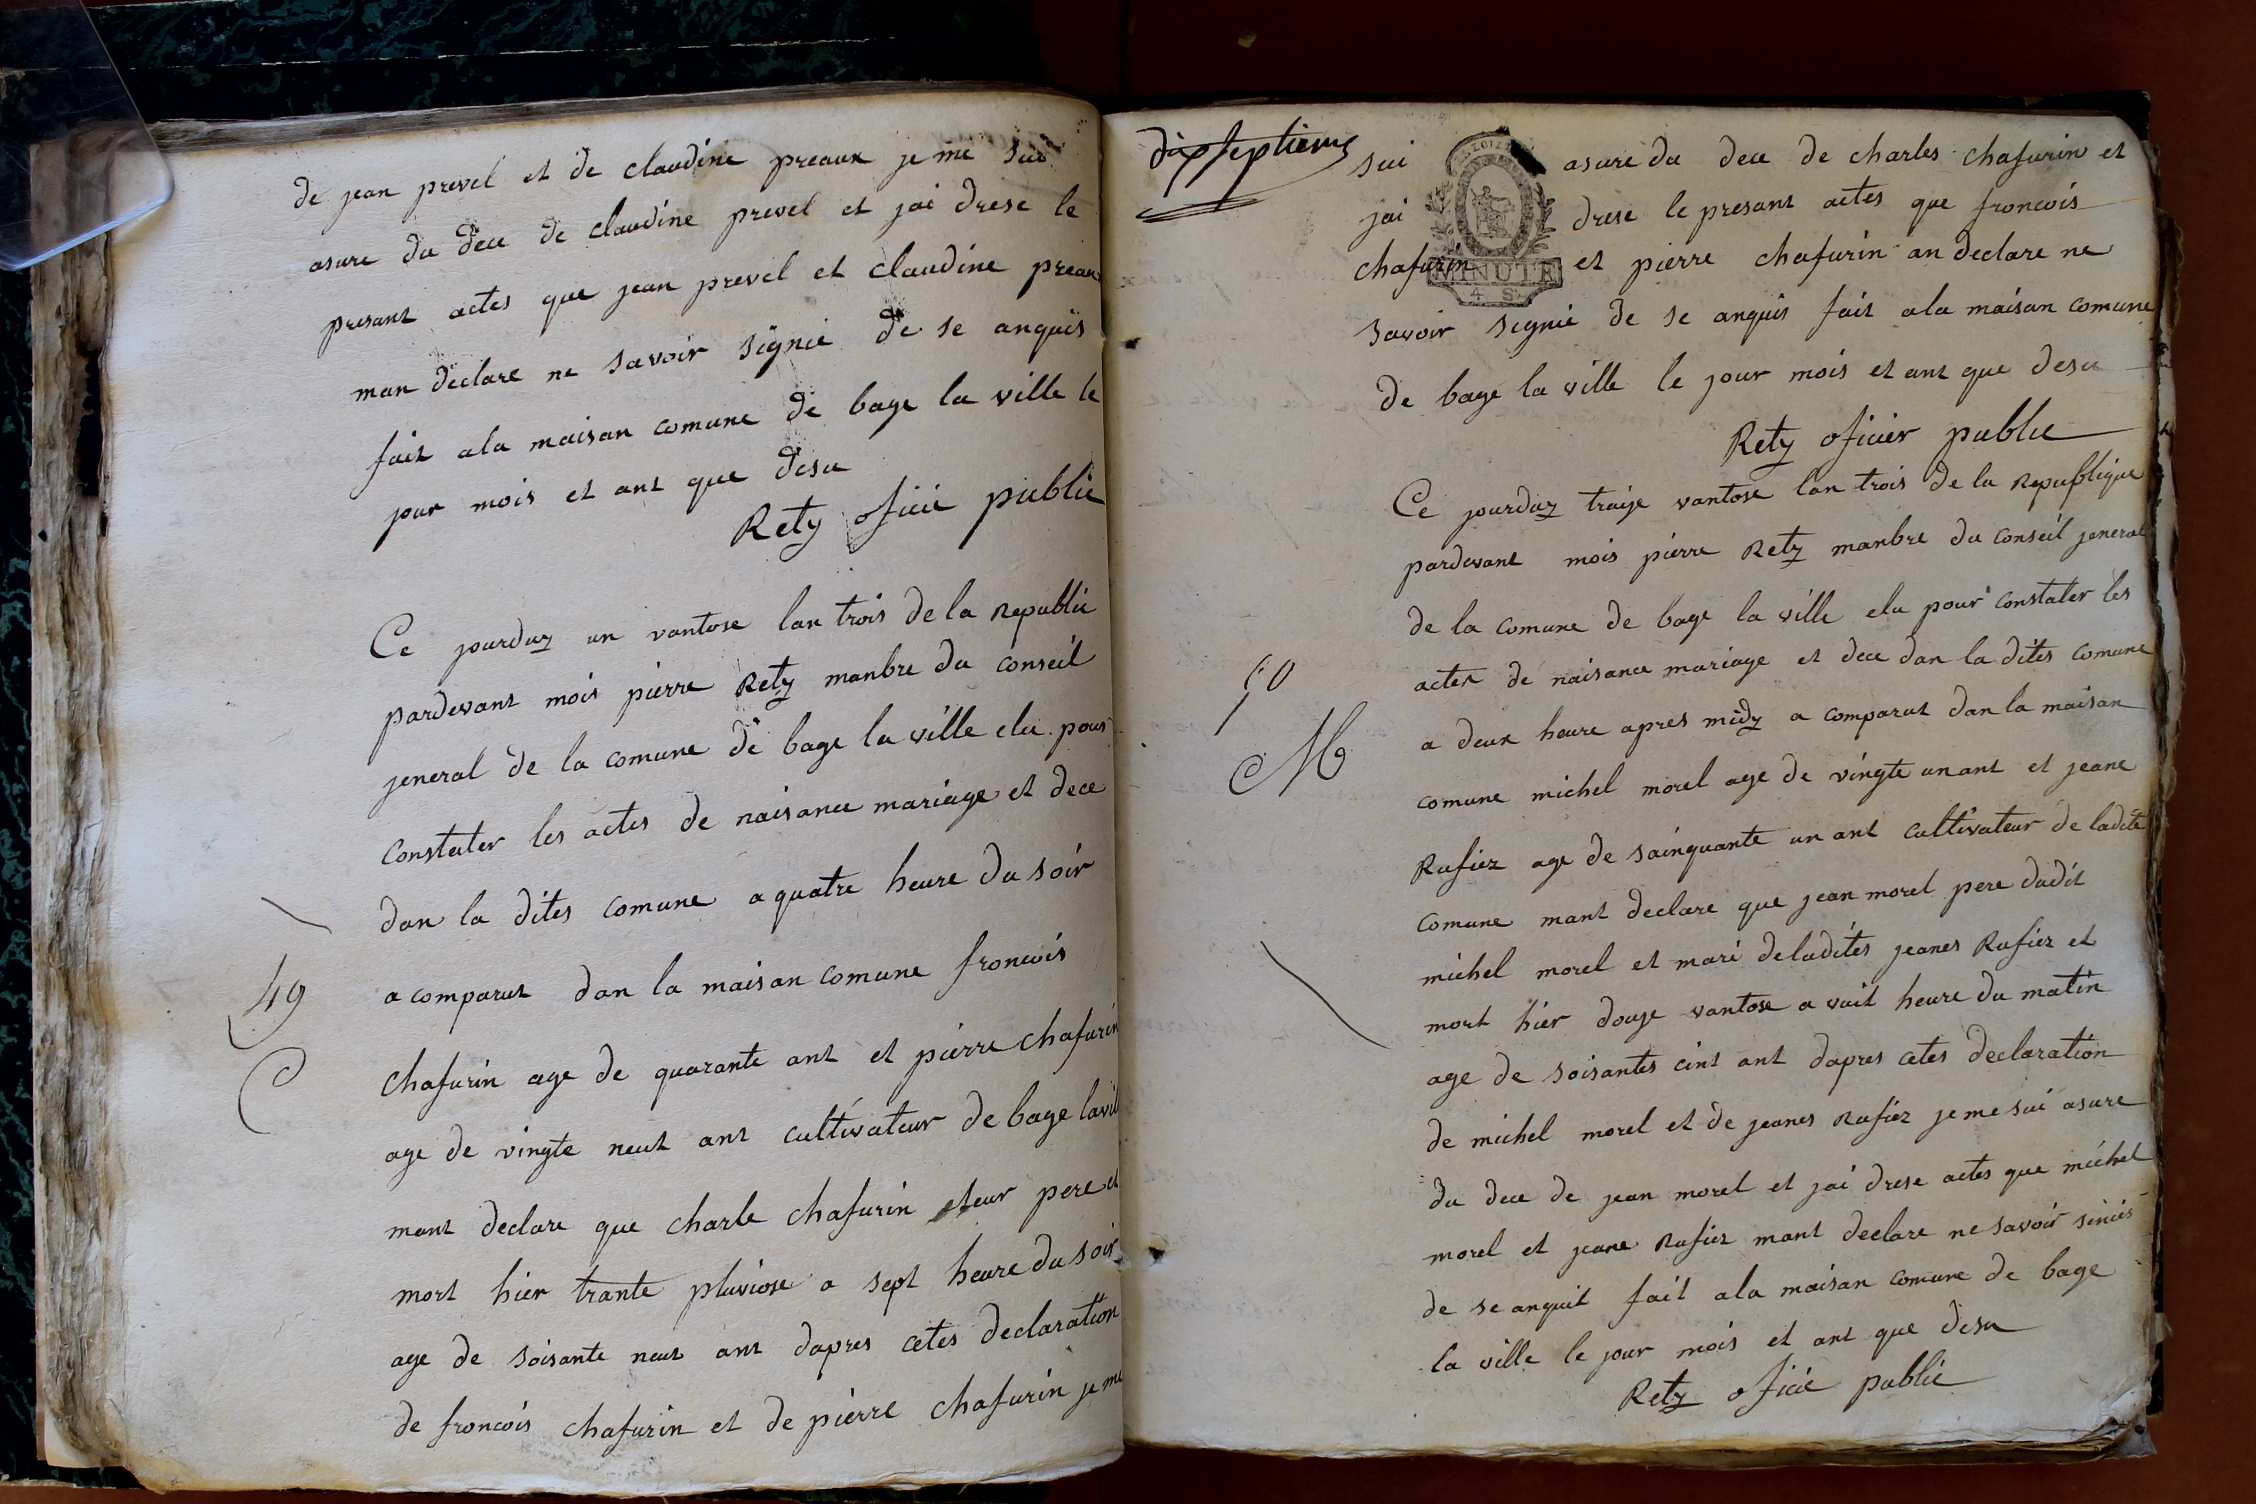 de jean prevel et de claudine preaux je me sui
asure du dece de claudine prevel et jai drese le
presant actes que jean prevel et claudine preaux
man declare ne savoir signié de se anquis
fait a la maison comune de bage la ville le
jour mois et ant que desu
Rety oficié public
Ce jourduy un vantose lan trois de la republic
pardevant mois pierre Rety manbre du conseil
jeneral de la comune de bage la ville elu pour
constater les actes de naisance mariage et dece
dan la dites comune a quatre heure du soir
49
a comparut dan la maison comune froncois
C
chafurin age de quarante ant et pierre chafurin
age de vingte neut ant cultivateur de bage lavil
mant declare que charle chafurin leur pere et
mort hier trante pluviose a sept heure du soir
age de soisante neut ant dapres cetes declaration
de froncois chafurin et de pierre chafurin je me
dixseptieme
sui asure du dece de charles chafurin et
jai drese le presant actes que froncois
chafurin et pierre chafurin an declare ne
MINUTE
4 S.
savoir signié de se anquis fait a la maison comune
de bage la ville le jour mois et ant que desu
Rety oficier public
Ce jourduy traize vantose lan trois de la Republique
pardevant mois pierre Rety manbre du conseil jeneral
de la comune de bage la ville elu pour constater les
50
acter de naisance mariage et dece dan la dites comune
M
a deux heure apres midy a comparut dan la maison
comune michel morel age de vingte un ant et jeane
Rufiez age de sainquante un ant cultivateur de ladite
comune mant declare que jean morel pere dudit
michel morel et mari deladites jeanes Rufiez et
mort hier douze vantose a vuit heure du matin
age de soisantes cint ant dapres cetes declaration
de michel morel et de jeanes Rufiez je me sui asure
du dece de jean morel et jai drese actes que michel
morel et jeane Rufiez mant declare ne savoir siniés
de se anquit fait a la maison comune de bage
la ville le jour mois et ant que desu
Rety oficié public